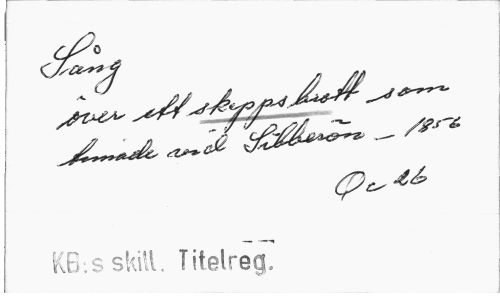 Sång
över ett skeppsbrott som
timade vid Sibberön – 1856
Qc 26
KB:s skill. Titelreg.